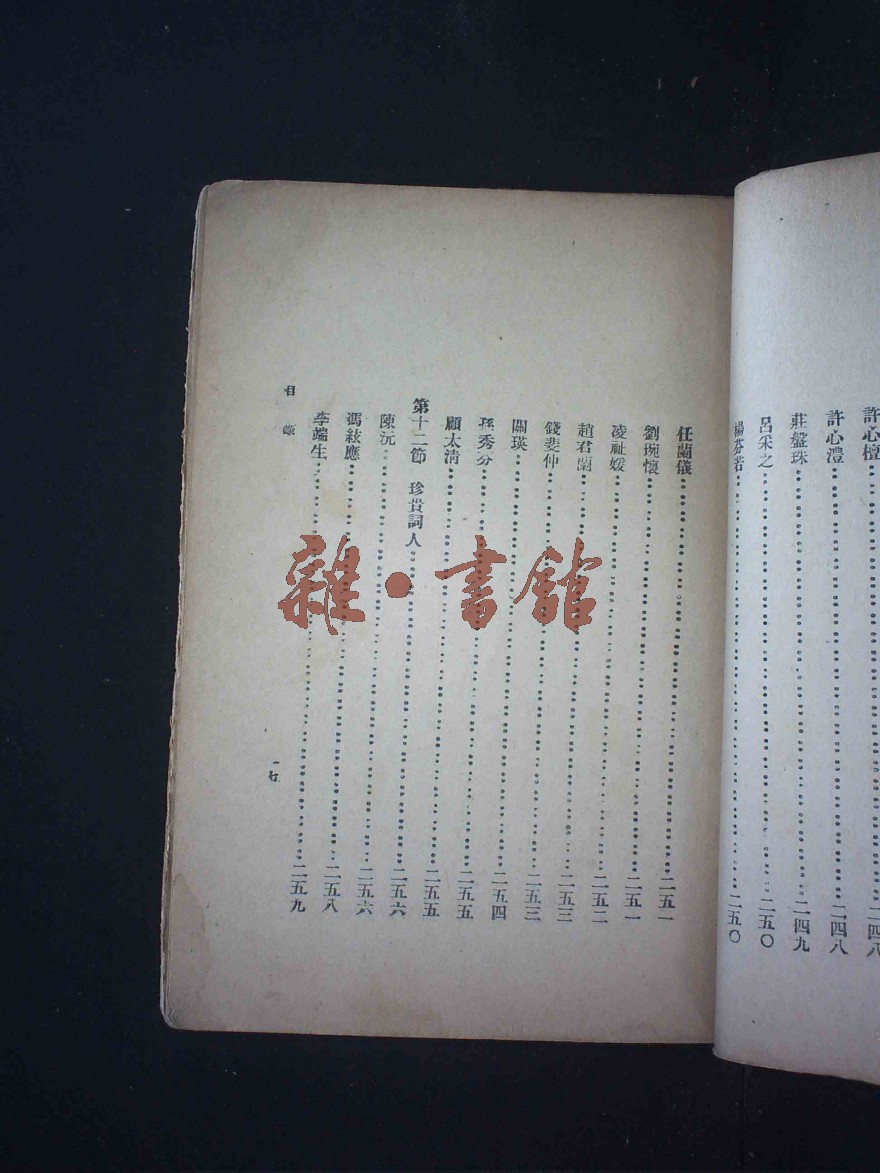 許心檀……二四八
許心澧……二四八
莊盤珠……二四九
呂采之……二五〇
楊芬若……二五〇
任蘭儀……二五一
劉琬懷……二五一
凌祉媛……二五二
趙君蘭……二五三
錢斐仲……二五三
關瑛……二五四
孫秀芬……二五五
顧太清……二五五
第十二節　珍貴詞人……二五六
陳沅……二五六
馮絃應……二五八
李端生……二五九
目錄
一七
雜·書館